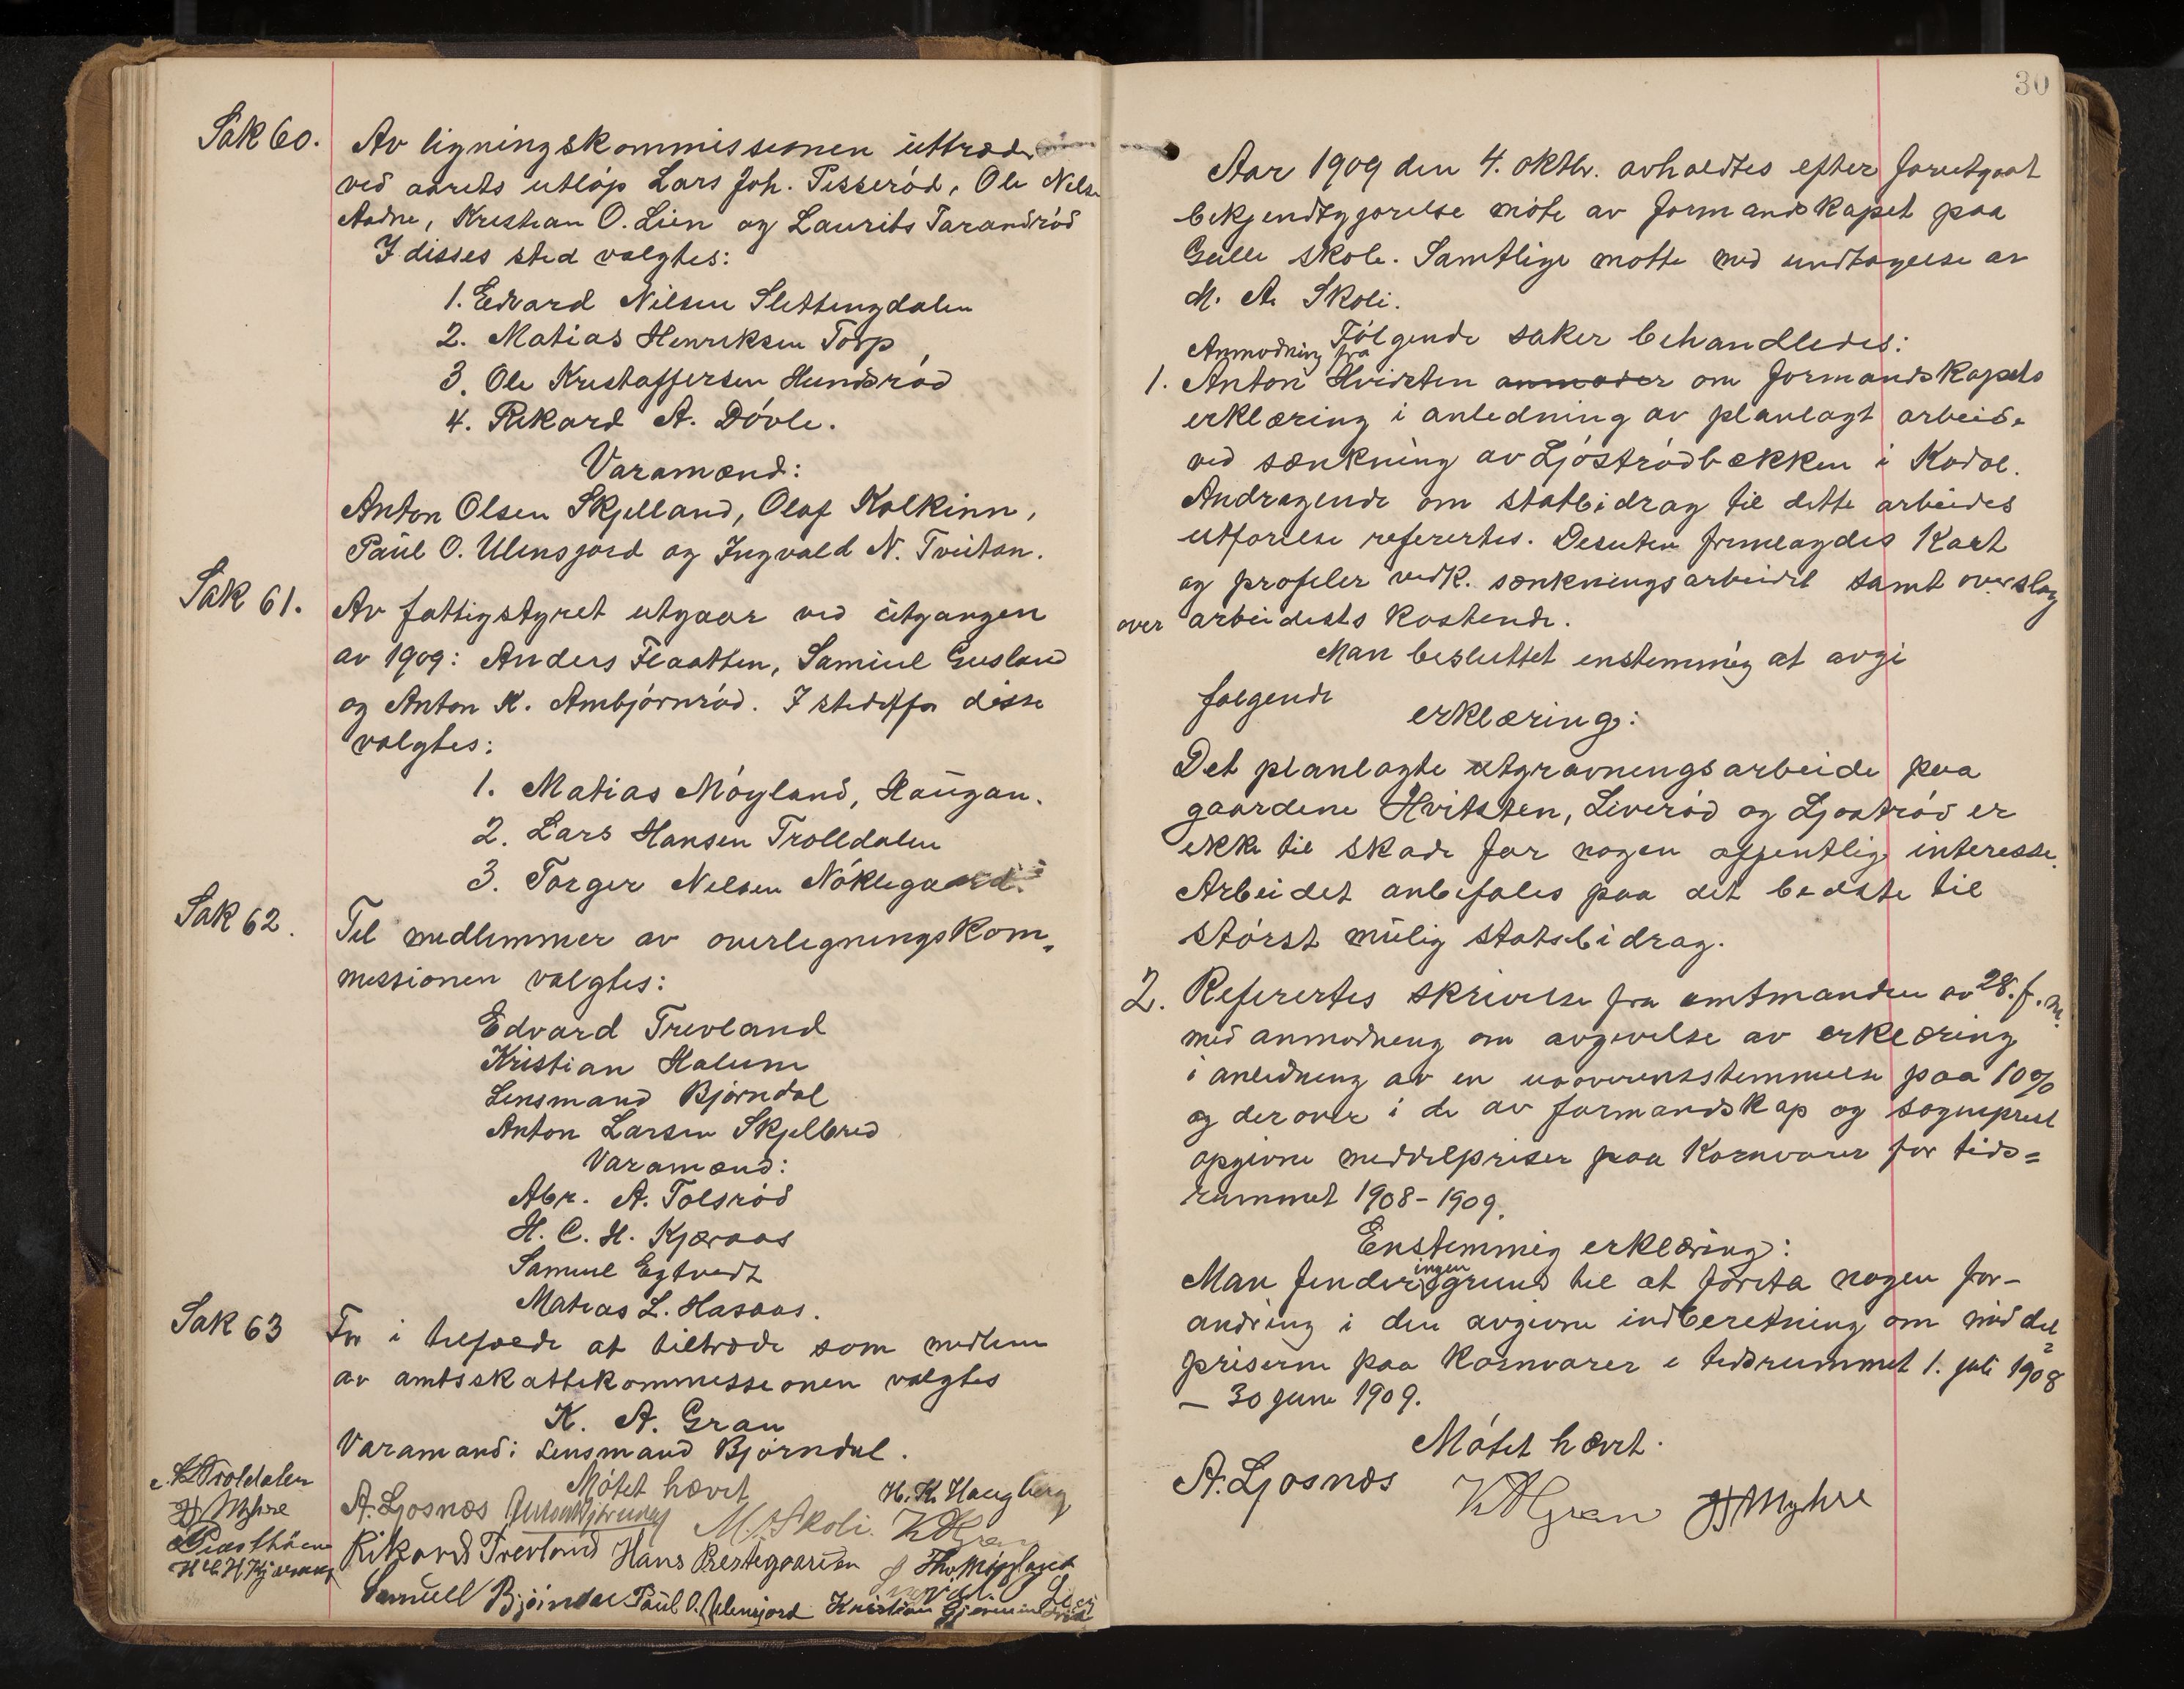 Sak 60.
Av ligningskommissionen uttræder
ved aarets utløp Lars Joh. Tesserød, Ole Nelsen
Aadne, Kristian O. Lien og Laurits Tarandrød
I disses sted valgtes:
1. Edvard Nilsen Slettingdalen
2. Matias Henriksen Torp
3. Ole Kristoffersen Hundsrød
4. Rikard A. Døvle.
Varamænd:
Anton Olsen Skjelland, Olaf Kolkinn,
Paul O. Ulensjord og Ingvald N. Tveitan.
Sak 61.
Av fattigstyret utgaar ved utgangen
av 1909: Anders Flaatten, Samuel Gusland
og Anton K. Ambjørnrød. I stedet for disse
valgtes:
1. Matias Møyland, Haugan.
2. Lars Hansen Trolldalen
3. Torger Nelsen Nøklegaard.
Sak 62.
Til medlemmer av overlegningskom-
messionen valgtes:
Edvard Trevland
Kristian Halum
Lensmand Bjørndal
Anton Larsen Skjelbred
Varamænd:
Abr. A. Tolsrød
H. C. H. Kjæraas
Samuel Egtvedt
Matias L. Hasaas.
Sak 63
For i tilfælde at tiltræde som medlem
av amtsskattekommessionen valgtes
K. A. Gran
Varamand: Lensmand Bjørndal.
Møtet hævet
Troldalen
Myhre
H C H Kjæraas
A. Ljosnæs
M. A. Skoli.
H. K. Haugberg
KAGran
Rikard Trevland Hans Prestegaarden
Th. Møyland
Samuell Bjørndal Paul O. Ulensjord Kristian
30
Aar 1909 den 4. oktbr. avholdtes efter forutgaat
bekjendtgjørelse møte av formandskapet paa
Gulli skole. Samtlige møtte med undtagelse av
M. A. Skoli.
Følgende saker behandledes:
Anmodning fra
1. Anton Hvidsten anmoder om formandskapets
erklæring i anledning av planlagt arbeide
ved sænkning av Ljøstrødbækken i Kodal.
Andragende om statbidrag til dette arbeides
utførelse refertes. Desuten fremlagdes Kart
og profiler vedk. sænkningsarbeidet samt overslag
over arbeidets kostende.
Man besluttet enstemmig at avgi
følgende
erklæring:
Det planlagte utgravningsarbeide paa
gaardene Hvitsten, Liverød og Ljøstrød er
ikke til skade for nogen offentlig interesse.
Arbeidet anbefales paa det bedste til
størst mulig statsbidrag.
2. Refererties skrivelse fra amtmanden av 28. f. m.
med anmodning om avgivelse av erklæring
i anledning av en uoverensstemmelse paa 10%
og derover i de av formandskap og sogneprest
opgivne meddelpriser paa Kornvarer for tids=
rummet 1908-1909.
Enstemmig erklæring:
Man finder ingen grund til at foreta nogen for-
andring i den avgivne indberetning om middel=
priserne paa kornvarer i tidsrummet 1. juli 1908
— 30 juni 1909.
Møtet hævet.
A. Ljosnæs KAGran Myhre